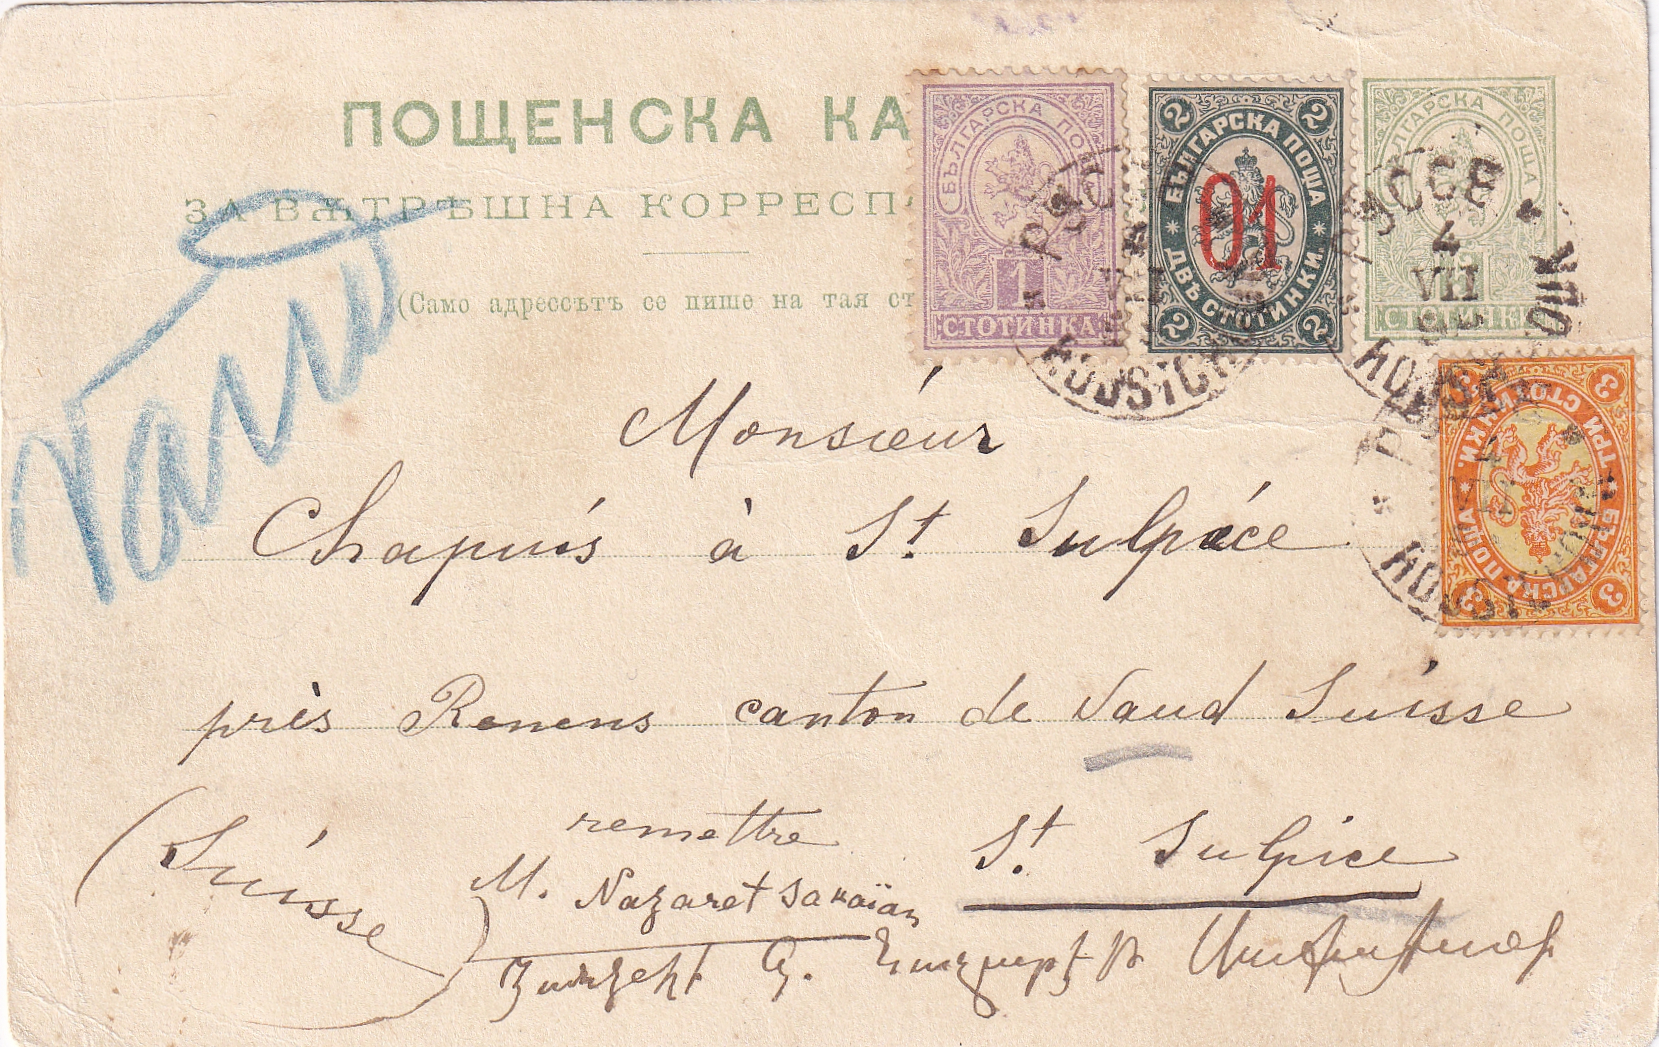 ПОЩЕНСКА КА
ЗА ВѪТРѢШНА КОРРЕСП
(Само адрессътъ се пише на тая ст
БЪЛГАРСКА ПОЩА
1
СТОТИНКА
2 2
БЪЛГАРСКА ПОЩА
01
ДВѢ СТОТИНКИ
2 2
БЪЛГАРСКА ПОЩА
РУССЕ
4
VII
ROUSTCH
3 3
БЪЛГАРСКА ПОЩА
ТРИ СТОТИНКИ
3 3
Vaud
Monsieur
Chapuis à St Sulpice
près Renens canton de Vaud Suisse
(Suisse)
remettre
St. Sulpice
M. Nazaret Sakaïan